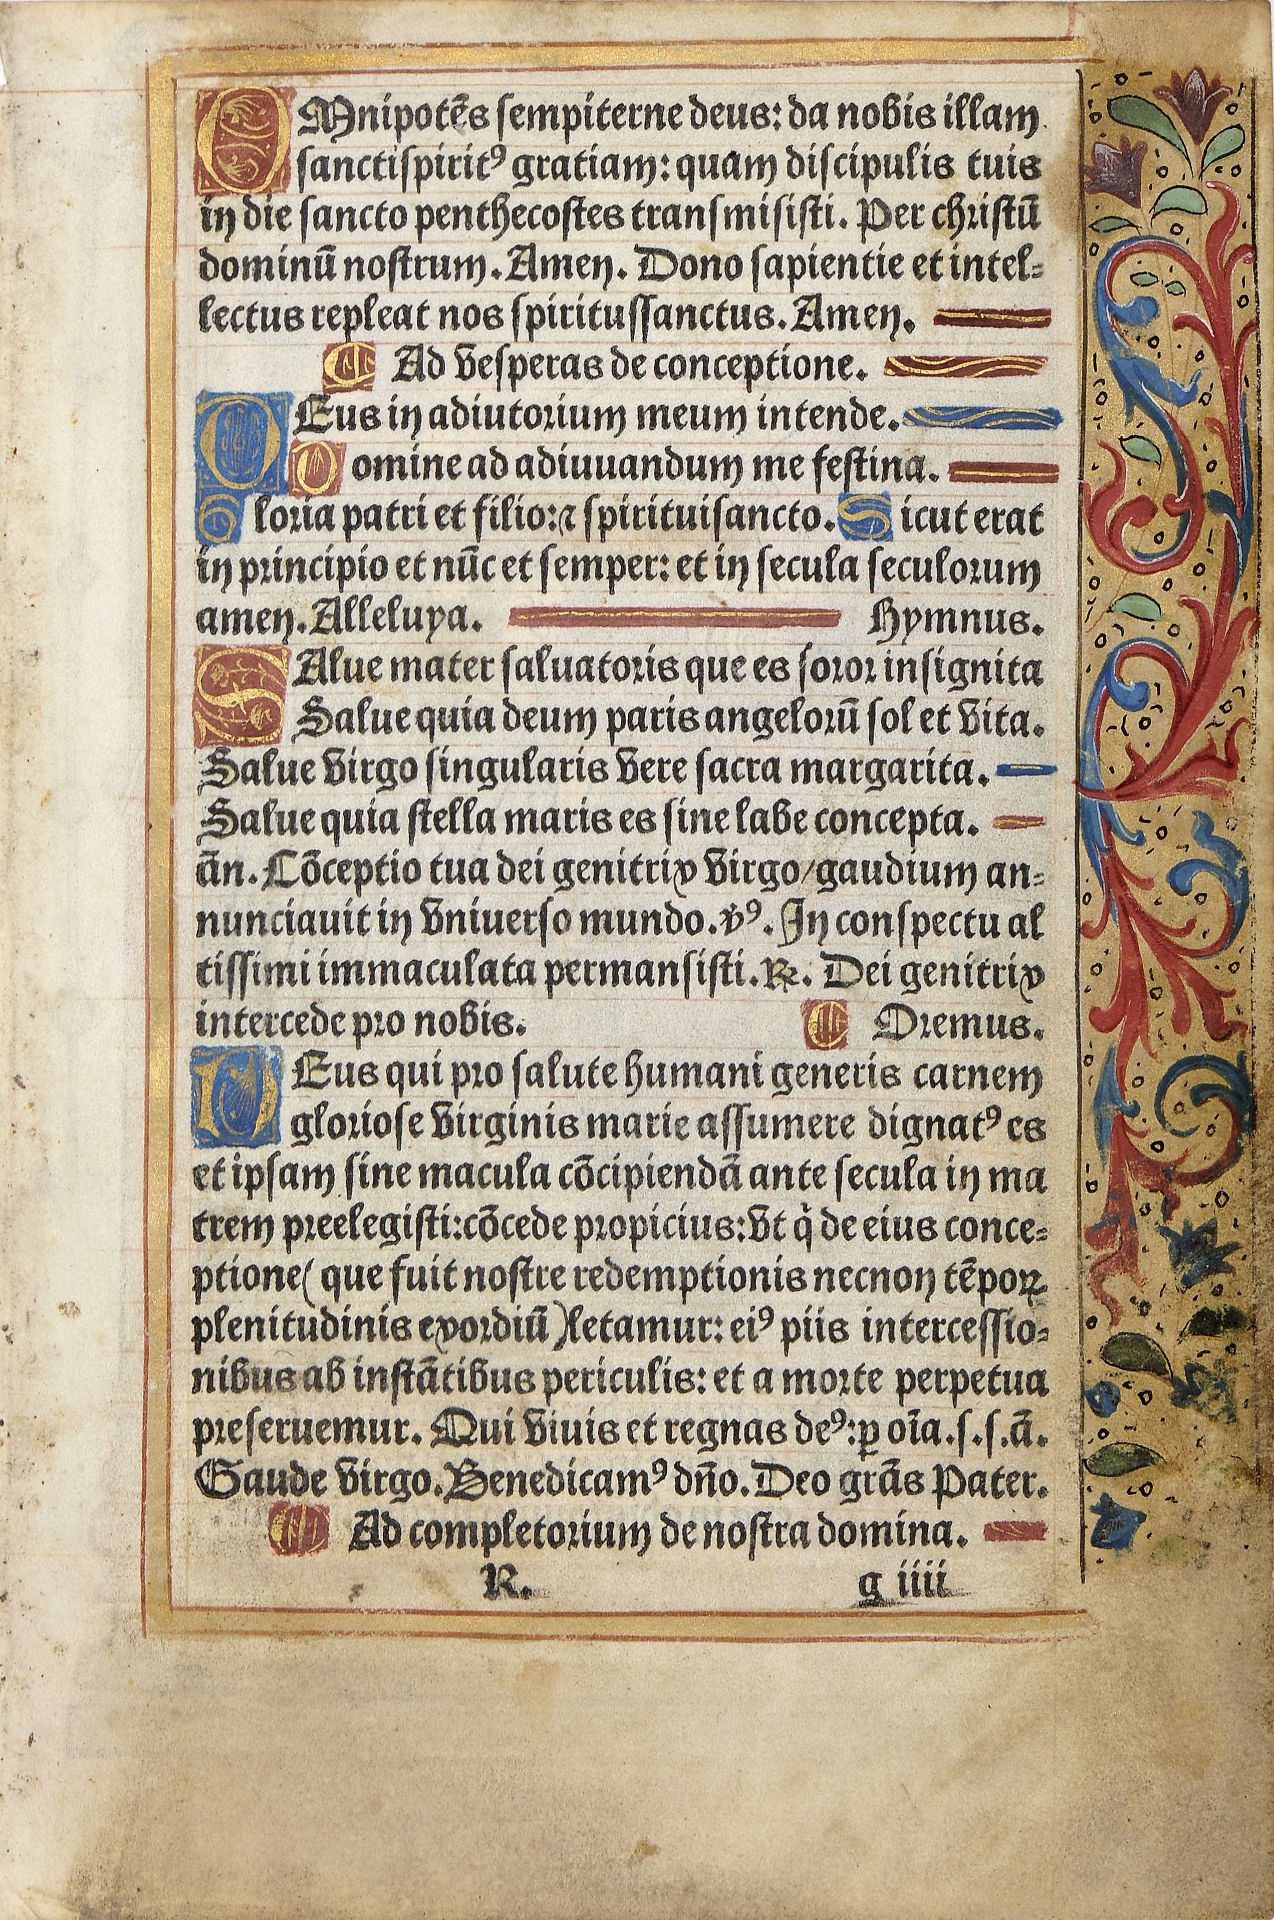 OMnipotēs sempiterne deus: da nobis illam
sanctispiritꝰ gratiam: quam discipulis tuis
in die sancto penthecostes transmisisti. Per christū
dominū nostrum. Amen. Dono sapientie et intel⸗
lectus repleat nos spiritussanctus. Amen.
Ad vesperas de conceptione.
DEus in adiutorium meum intende.
Domine ad adiuuandum me festina.
Gloria patri et filio: ⁊ spirituisancto. Sicut erat
in principio et nūc et semper: et in secula seculorum
amen. Alleluya. Hymnus.
SAlue mater saluatoris que es soror insignita
Salue quia deum paris angelorū sol et vita.
Salue virgo singularis vere sacra margarita.
Salue quia stella maris es sine labe concepta.
ān. Cōceptio tua dei genitrix virgo/gaudium an⸗
nunciauit in vniuerso mundo. vꝰ. In conspectu al
tissimi immaculata permansisti. ℞. Dei genitrix
intercede pro nobis. Oremus.
DEus qui pro salute humani generis carnem
gloriose virginis marie assumere dignatꝰ es
et ipsam sine macula cōcipiendā ante secula in ma
trem preelegisti: cōcede propicius: vt q̇ de eius conce⸗
ptione (que fuit nostre redemptionis necnon tēpoꝝ
plenitudinis exordiū) letamur: eiꝰ piis intercessio⸗
nibus ab instātibus periculis: et a morte perpetua
preseruemur. Qui viuis et regnas deꝰ: ꝑ oīa. s. s. ā.
Gaude virgo. Benedicamꝰ dño. Deo grās Pater.
Ad completorium de nostra domina.
R. g iiii